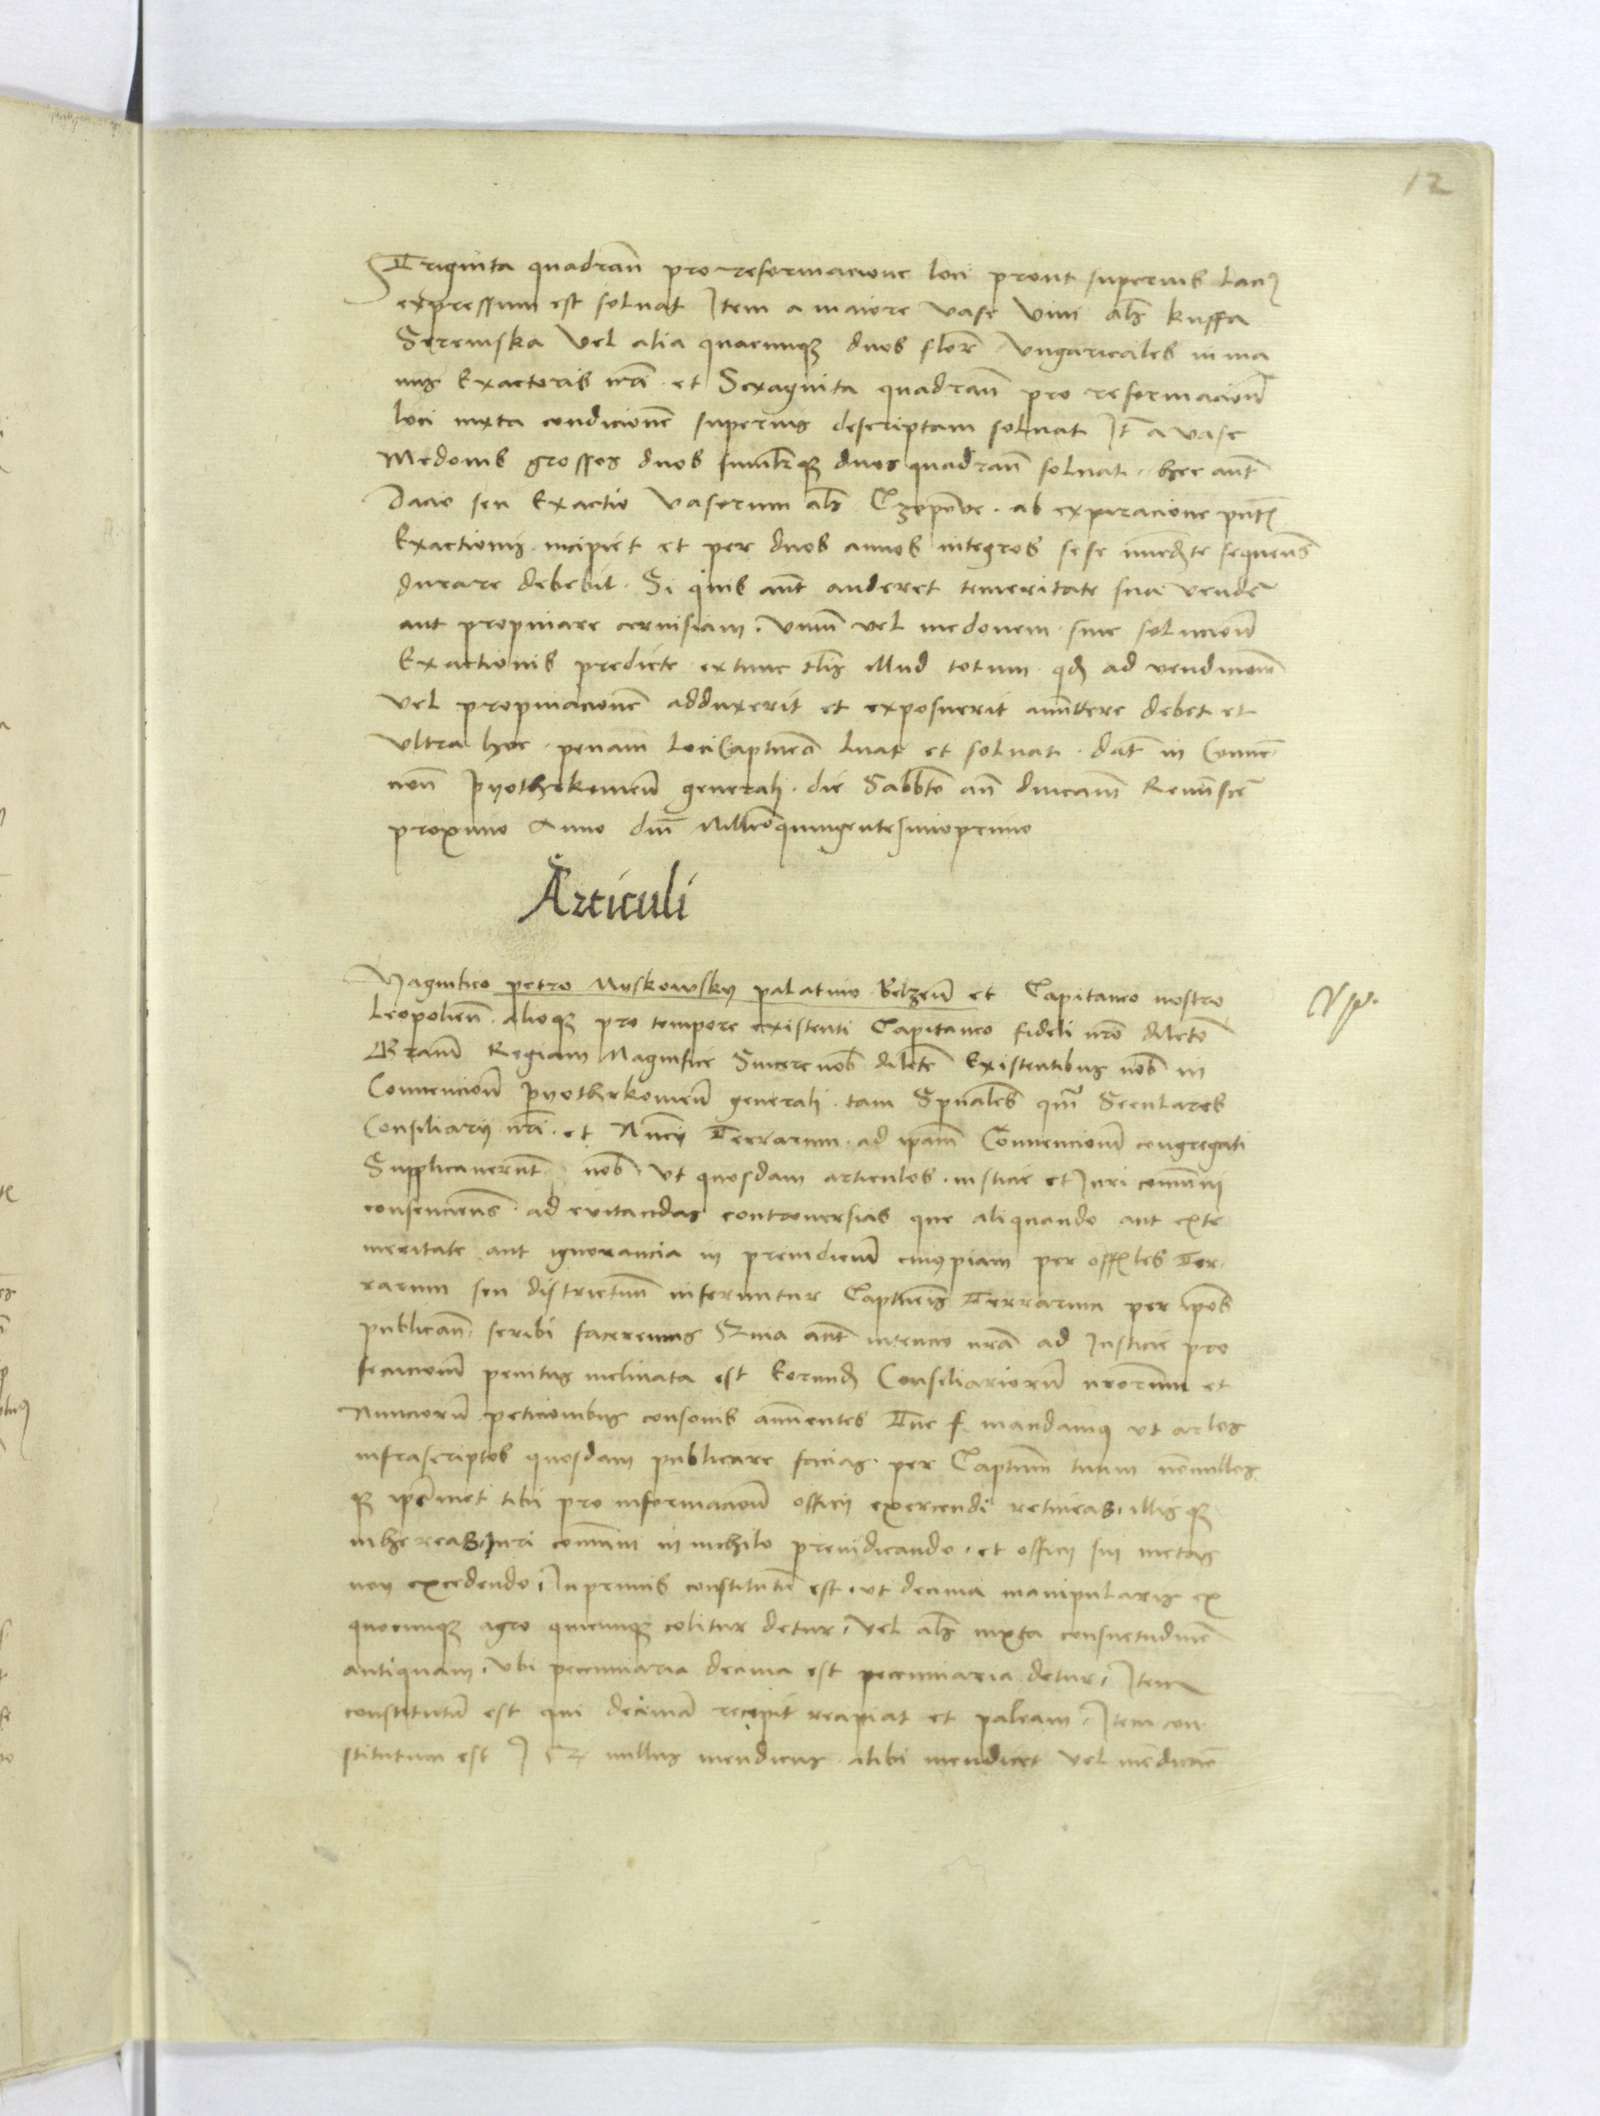 12
Triginta quadran̄ pro reformacione loci prout superius laci9
expressum est soluat Item a maiore vase vini al̄s kuffa
Seremska vel alia quacunqȝ duos flor̄ Vngaricales in ma
nus Exactoris nr̄i et Sexaginta quadran̄ pro reformacioñ
loci iuxta condicionē superius descriptam soluat It̄ a vase
Medonis grossos duos similr̄qȝ duos quadran̄ soluat. hec aut̄
Dacio seu Exactio Vasorum al̄s Czopowe. ab expiracione pn̄t̄
Exactionis incipiet et per duos annos integros sese immediate sequen̄
durare debebit. Si quis aut̄ auderet temeritate sua vender̄
aut propinare ceruisiam. vinū vel medonem sine solucioñ
Exactionis predicte extunc tl̄is illud totum qd̄ ad vendicionē
vel propinacionē adduxerit et exposuerit amittere debet et
vltra hoc penam loci Capitanei luat et soluat. dat̄ in Conuen
cion̄ Pyotrkowień generali die Sabbto an̄ dnicam̄ Reminiscer̄
proximo Anno dnī Millesimoquingentesimoprimo
Articuli
Magnifico petro Myskowsky palatino Belzeñ et Capitaneo nostro
Leopolieñ alioqȝ pro tempore existenti Capitaneo fideli nrō dilecto
Graciam Regiam Magnifice Sincere nob̄ dilecte Existentibus nob̄ in
Conuencioñ Pyothrkowieñ generali tam Spūales qm̄ Seculares
Consiliarii nr̄i et Nuncii Terrarum ad ipam̄ Conuencionē congregati
Supplicauerunt nob̄ vt quosdam articulos iusticie et Iuri comuni
consencien̄s ad euitandas controuersias que aliquando aut ex te
meritate aut ignorancia in preiudiciū cuiuspiam per officiales Ter
rarum seu districtuū inferuntur Capitaneis Terrarum per ipos
publican̄ scribi faceremus Quia aut̄ intencio nrā ad Iusticie pro
secucionē penitus inclinata est Eorund̄ Consiliariorū nrōrum et
Nunciorū peticionibus consonis annuentes Tue f. mandamus vt ar̄los
infrascriptos quosdam publicare facias per Capitaneatū tuum nonnullos
qȝ ipemet tibi pro informacioñ officii exercendi retineas, illisqȝ
inhereas, Iuri comuni in nichilo preiudicando. et officii sui metas
non excedendo, In primis constitutū est, vt decima manipularis ex
quocunqȝ agro quicunqȝ colitur detur, vel al̄s iuxta consuetudinē
antiquam, vbi pecuniaria decima est pecuniaria detur, Item
constitutū est qui decimā recipit recipiat et paleam, Item con
stitutum est Q nullus mendicus alibi mendicet vel